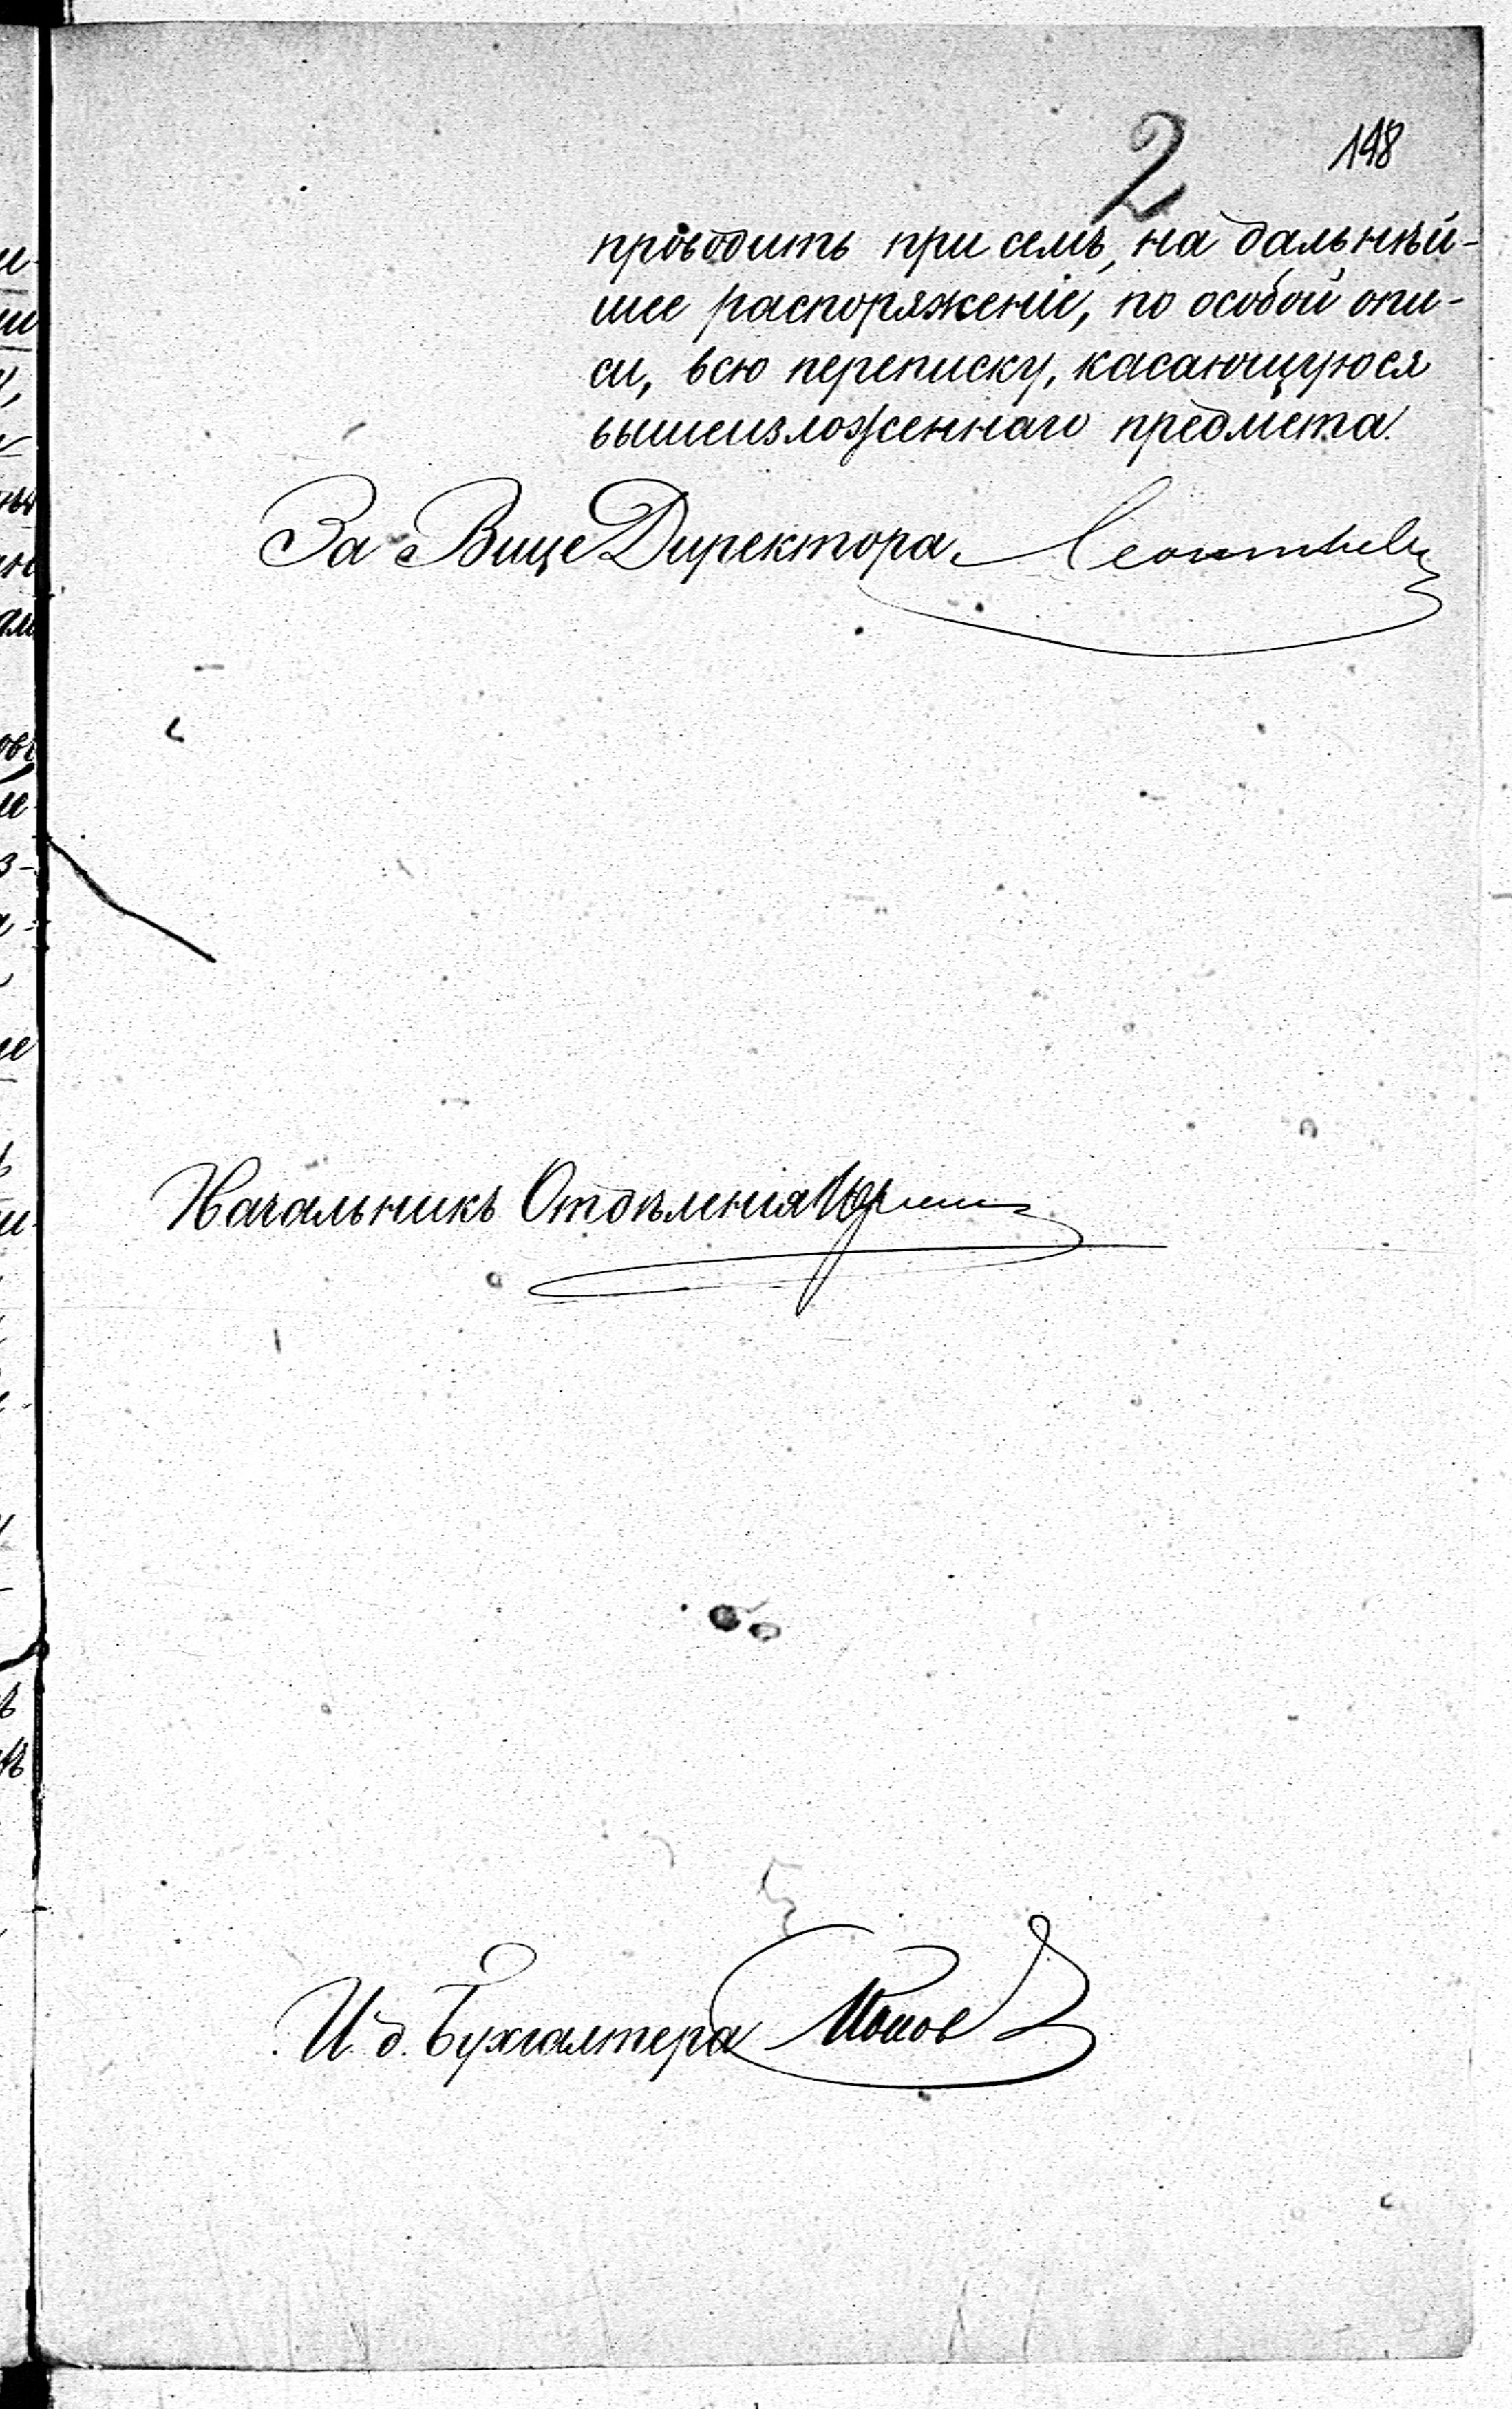 2 198
проводить при семъ, на дальнѣй-
шее распоряженіе, по особой опи-
си, всю переписку, касающуюся
вышеизложеннаго предмета.
За Вице Директора Леонтьевъ
Начальникъ Отдѣленія
И. д. Бухгалтера Попов